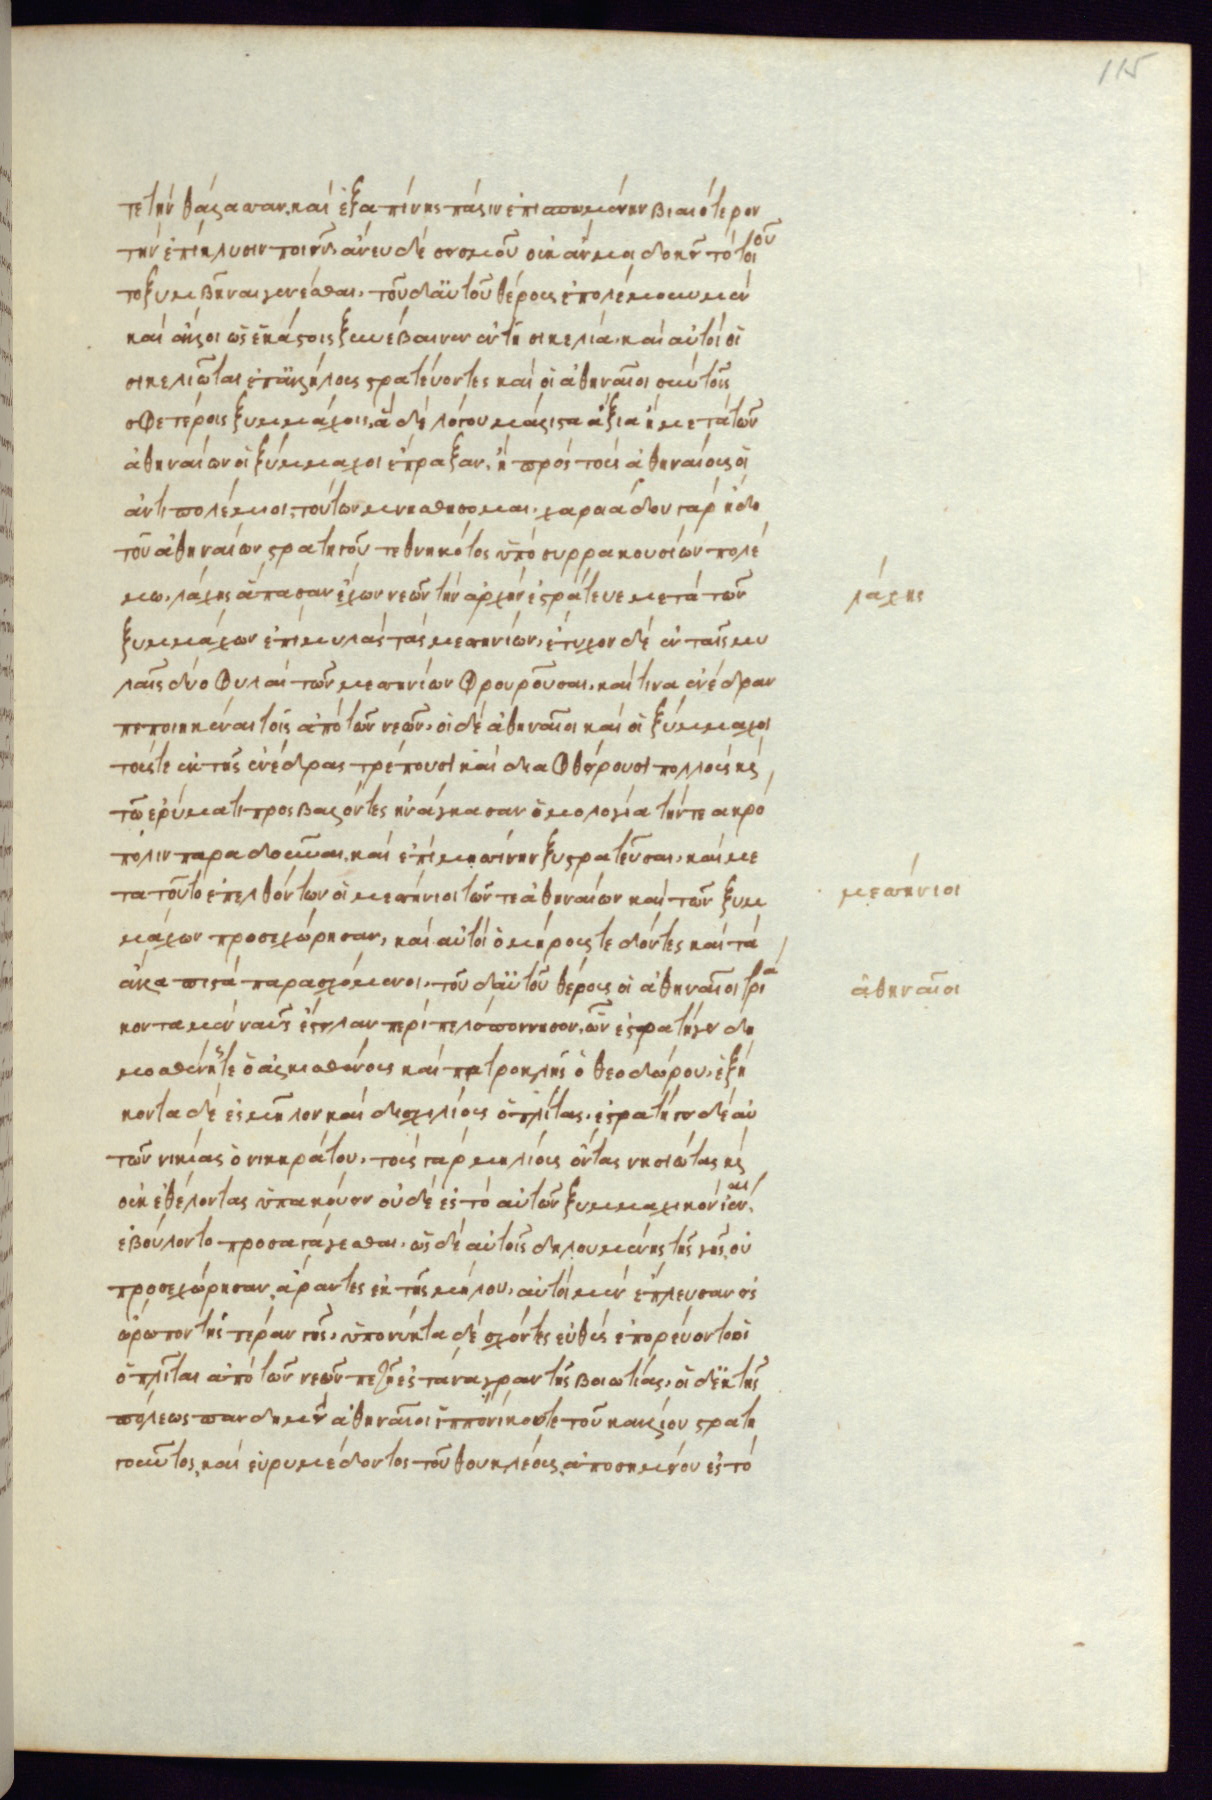 115
τε τὴν θάλασσαν. καὶ ἐξαπίνης πάλιν ἐπισπωμένην βιαιότερον
τὴν ἐπίκλυσιν ποιεῖν. ἄνευ δὲ σεισμοῦ οὐκ ἄν μοι δοκεῖ τὸ τοιοῦ
το ξυμβῆναι γενέσθαι. τοῦ δ' αὐτοῦ θέρους ἐπολέμουν μὲν
καὶ ἄλλοι ὡς ἑκάστοις ξυνέβαινεν ἐν τῇ σικελίᾳ. καὶ αὐτοὶ οἱ
σικελιῶται ἐπ' ἀλλήλους στρατεύοντες καὶ οἱ ἀθηναῖοι σὺν τοῖς
σφετέροις ξυμμάχοις. ἃ δὲ λόγου μάλιστα ἄξια ἢ μετὰ τῶν
ἀθηναίων οἱ ξύμμαχοι ἔπραξαν. ἢ πρὸς τοὺς ἀθηναίους οἱ
ἀντιπολέμιοι. τούτων μνησθήσομαι. χαροιάδου γὰρ ἤδη
τοῦ ἀθηναίων στρατηγοῦ τεθνηκότος ὑπὸ συρρακουσίων πολέ
μῳ. λάχης ἅπασαν ἔχων νεῶν τὴν ἀρχὴν ἐστράτευε μετὰ τῶν
λάχης
ξυμμάχων ἐπὶ μυλὰς τὰς μεσσηνίων. ἔτυχον δὲ ἐν ταῖς μυ
λαῖς δύο φυλαὶ τῶν μεσσηνίων φρουροῦσαι. καί τινα ἐνέδραν
πεποιημέναι τοῖς ἀπὸ τῶν νεῶν. οἱ δὲ ἀθηναῖοι καὶ οἱ ξύμμαχοι
τούς τε ἐκ τῆς ἐνέδρας τρέπουσι καὶ διαφθείρουσι πολλοὺς κὶ
τῷ ἐρύματι προσβαλόντες ἠνάγκασαν ὁμολογίᾳ τήν τε ἀκρό
πολιν παραδοῦναι. καὶ ἐπὶ μεσσήνην ξυστρατεῦσαι. καὶ με
τὰ τοῦτο ἐπελθόντων οἱ μεσσήνιοι τῶν τε ἀθηναίων καὶ τῶν ξυμ
μεσσήνιοι
μάχων προσεχώρησαν. καὶ αὐτοὶ ὁμήρους τε δόντες καὶ τὰ
ἄλλα πιστὰ παρασχόμενοι. τοῦ δ' αὐτοῦ θέρους οἱ ἀθηναῖοι τριά
ἀθηναῖοι
κοντα μὲν ναῦς ἔστειλαν περὶ πελοπόννησον. ὧν ἐστρατήγει δη
μοσθένης τε ὁ ἀλκισθένους καὶ πατροκλῆς ὁ θεοδώρου. ἑξή
κοντα δὲ ἐς μῆλον καὶ δισχιλίους ὁπλίτας. ἐστρατήγει δὲ αὐ
τῶν νικίας ὁ νικηράτου. τοὺς γὰρ μηλίους ὄντας νησιώτας κὶ
οὐκ ἐθέλοντας ὑπακούειν οὐδὲ ἐς τὸ αὐτῶν ξυμμαχικὸν ἰέναι.
ἐβούλοντο προσαγαγέσθαι. ὡς δὲ αὐτοῖς δηλουμένης τῆς γῆς οὐ
προσεχώρησαν. ἄραντες ἐκ τῆς μήλου. αὐτοὶ μὲν ἔπλευσαν ἐς
ὠρωπὸν τῆς πέραν γῆς. ὑπὸ νύκτα δὲ σχόντες εὐθὺς ἐπορεύοντο οἱ
ὁπλῖται ἀπὸ τῶν νεῶν πεζῇ ἐς τάναγραν τῆς βοιωτίας. οἱ δ' ἐκ τῆς
πόλεως πανδημεὶ ἀθηναῖοι ἱππονίκου τε τοῦ καλλίου στρατη
γοῦντος. καὶ εὐρυμέδοντος τοῦ θουκλέους. ἀπὸ σημείου ἐς τὸ